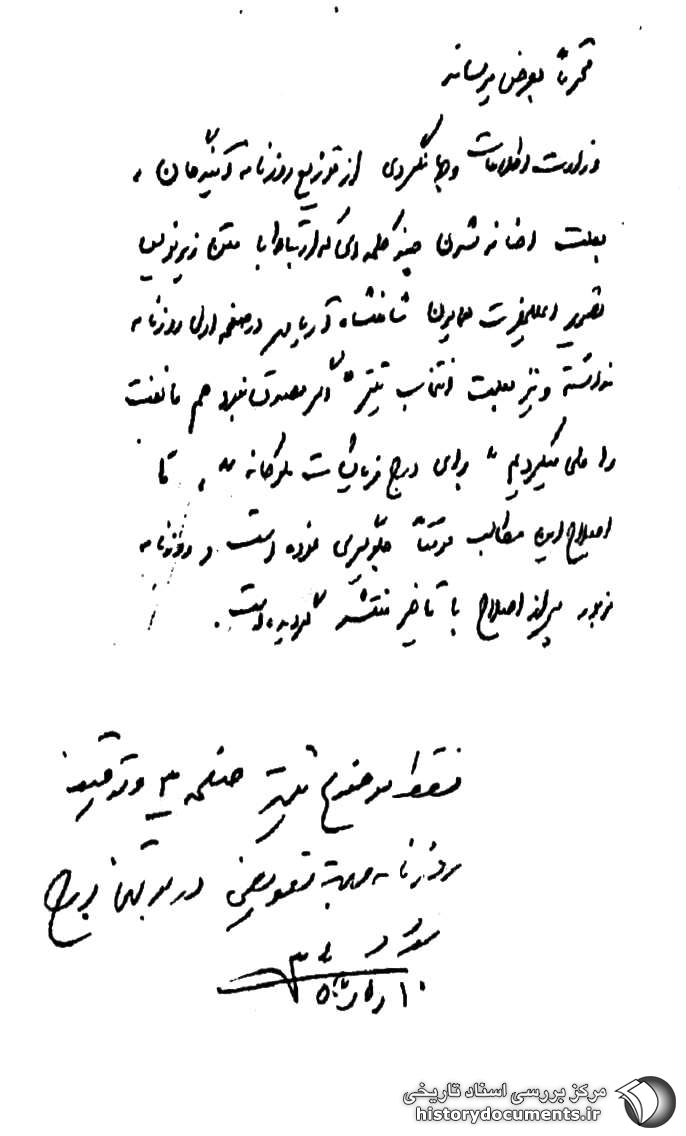 محترماً بعرض میرساند
وزارت اطلاعات و جهانگردی از توزیع روزنامه آیندگان به
بعلت اضافه شدن چند کلمه‌ای که ارتباط با متن زیرنویس
تصویر اعلیحضرت همایون شاهنشاه آریامهر در صفحه اول روزنامه
نداشته و نیز بعلت انتخاب تیتر " اگر مصدق نبود هم ما نفت
را ملی میکردیم " برای درج فرمایشات ملوکانه ، تا
اصلاح این مطالب موقتاً جلوگیری نموده است و روزنامه
مزبور پس از اصلاح با تأخیر منتشر گردیده است.
فقط موضوع تیتر صفحه ۳ و توقیف
روزنامه جهت تعویض در
۱۰
مرکز بررسی اسناد تاریخی
historydocuments.ir